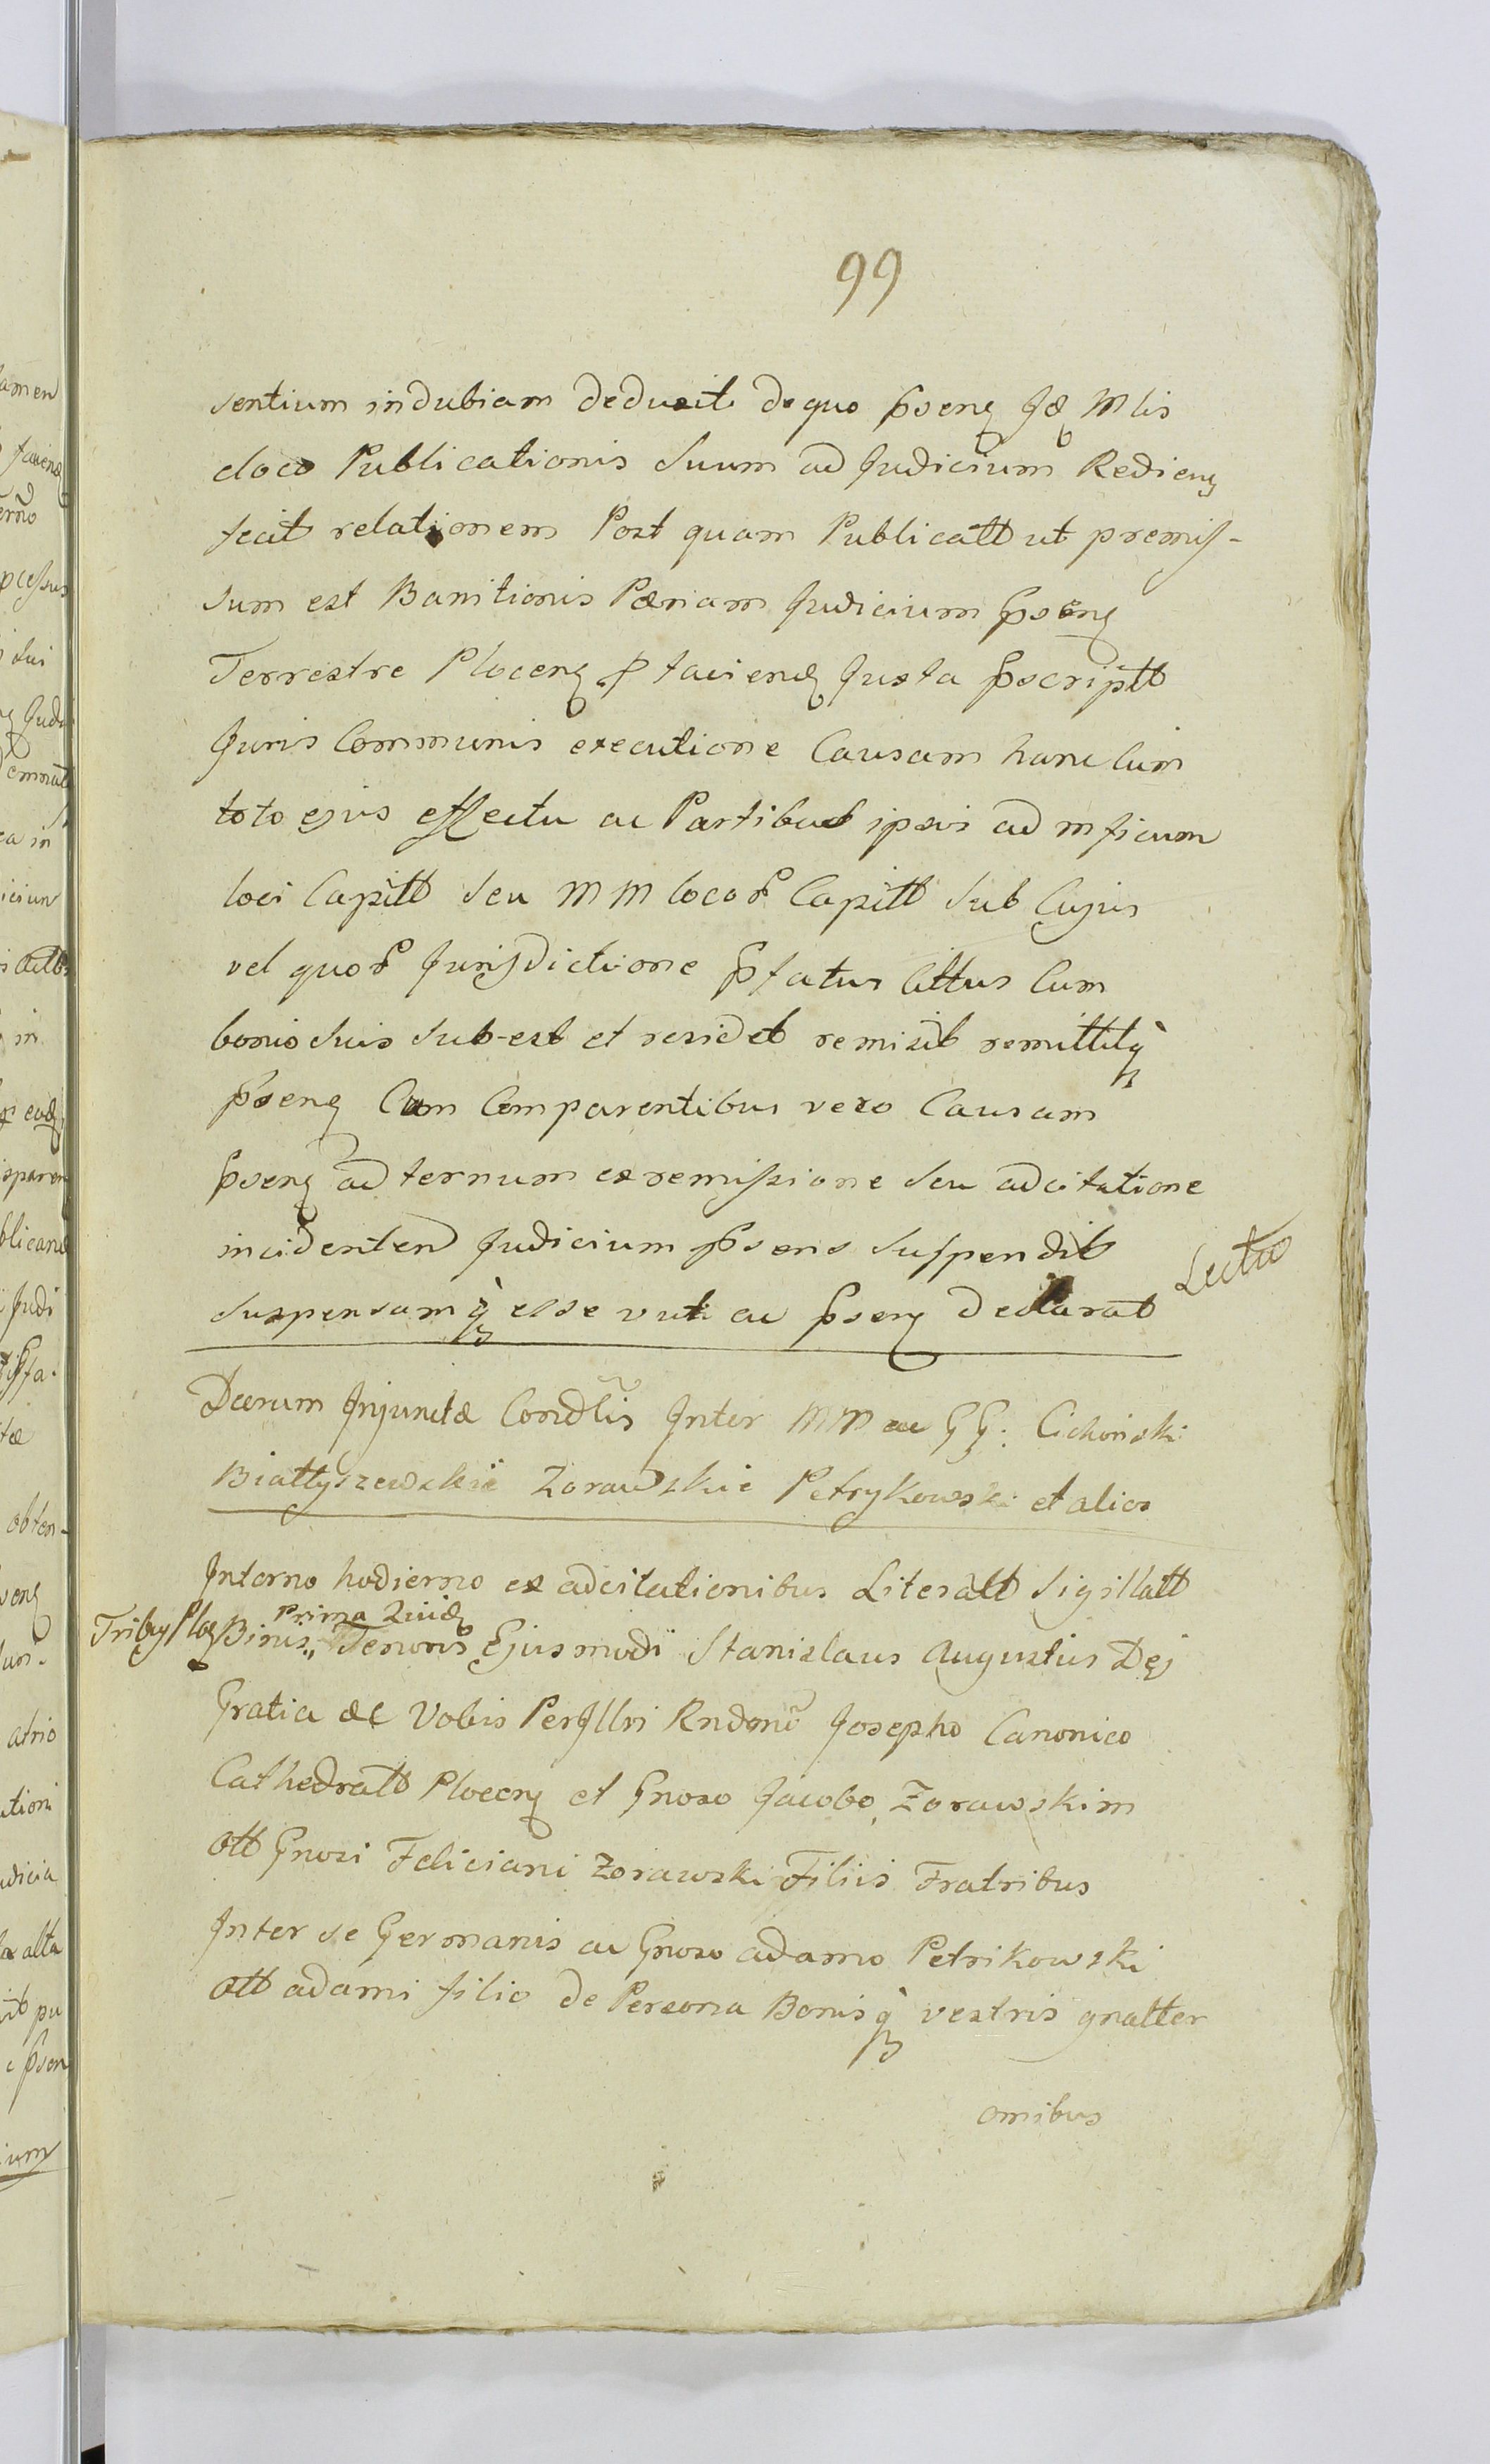 99
sentium indubiam deduxit dequo pseng Jđ Mlis
eloco Publicationis Suum ad Judicium Rediens
fecit relationem Post quam Publicatt ut premis-
sum est Banitionis Pænam Judicium pseng
Terrestre Plocen p faciend Juxta pscriptt
Juris Communis executione Causam hanc Cum
toto ejus effectu ac Partibus ipsis ad mficum
loci Capitt Seu MM locor Capitt Sub Cujus
vel quor Jurisdictione pfatus Cittus Cum
bonis Suis Sub-est et residet remisit remittitq
pseng Cum Comparentibus vero Causam
pseng ad ternum ex remissione Seu adcitatione
incidenten Judicium psens Suspendit
Suspensamq esse vult ac pseng declarat
Lectu
Dcerum Injunctæ Condlis Inter MM ac GG: Cichoński
Białłyszewskie Zorawskie Petrykowski et alios
Interno hodierno ex adcitationibus Literatt Sigillatt
Tribus Ploc Binis Prima Quid Tenoris Ejusmodi Stanislaus Augustus Dej
Gratia &c Vobis PerJllri Rndmo Josepho Canonico
Cathedratt Plocens et Gnoso Jacobo Zorawskim
Ott Gnosi Feliciani Zorawski Filiis Fratribus
Inter se Germanis ac Gnoso adamo Petrikowski
Ott adami filio de Persona Bonisq vestris gnatter
omibus